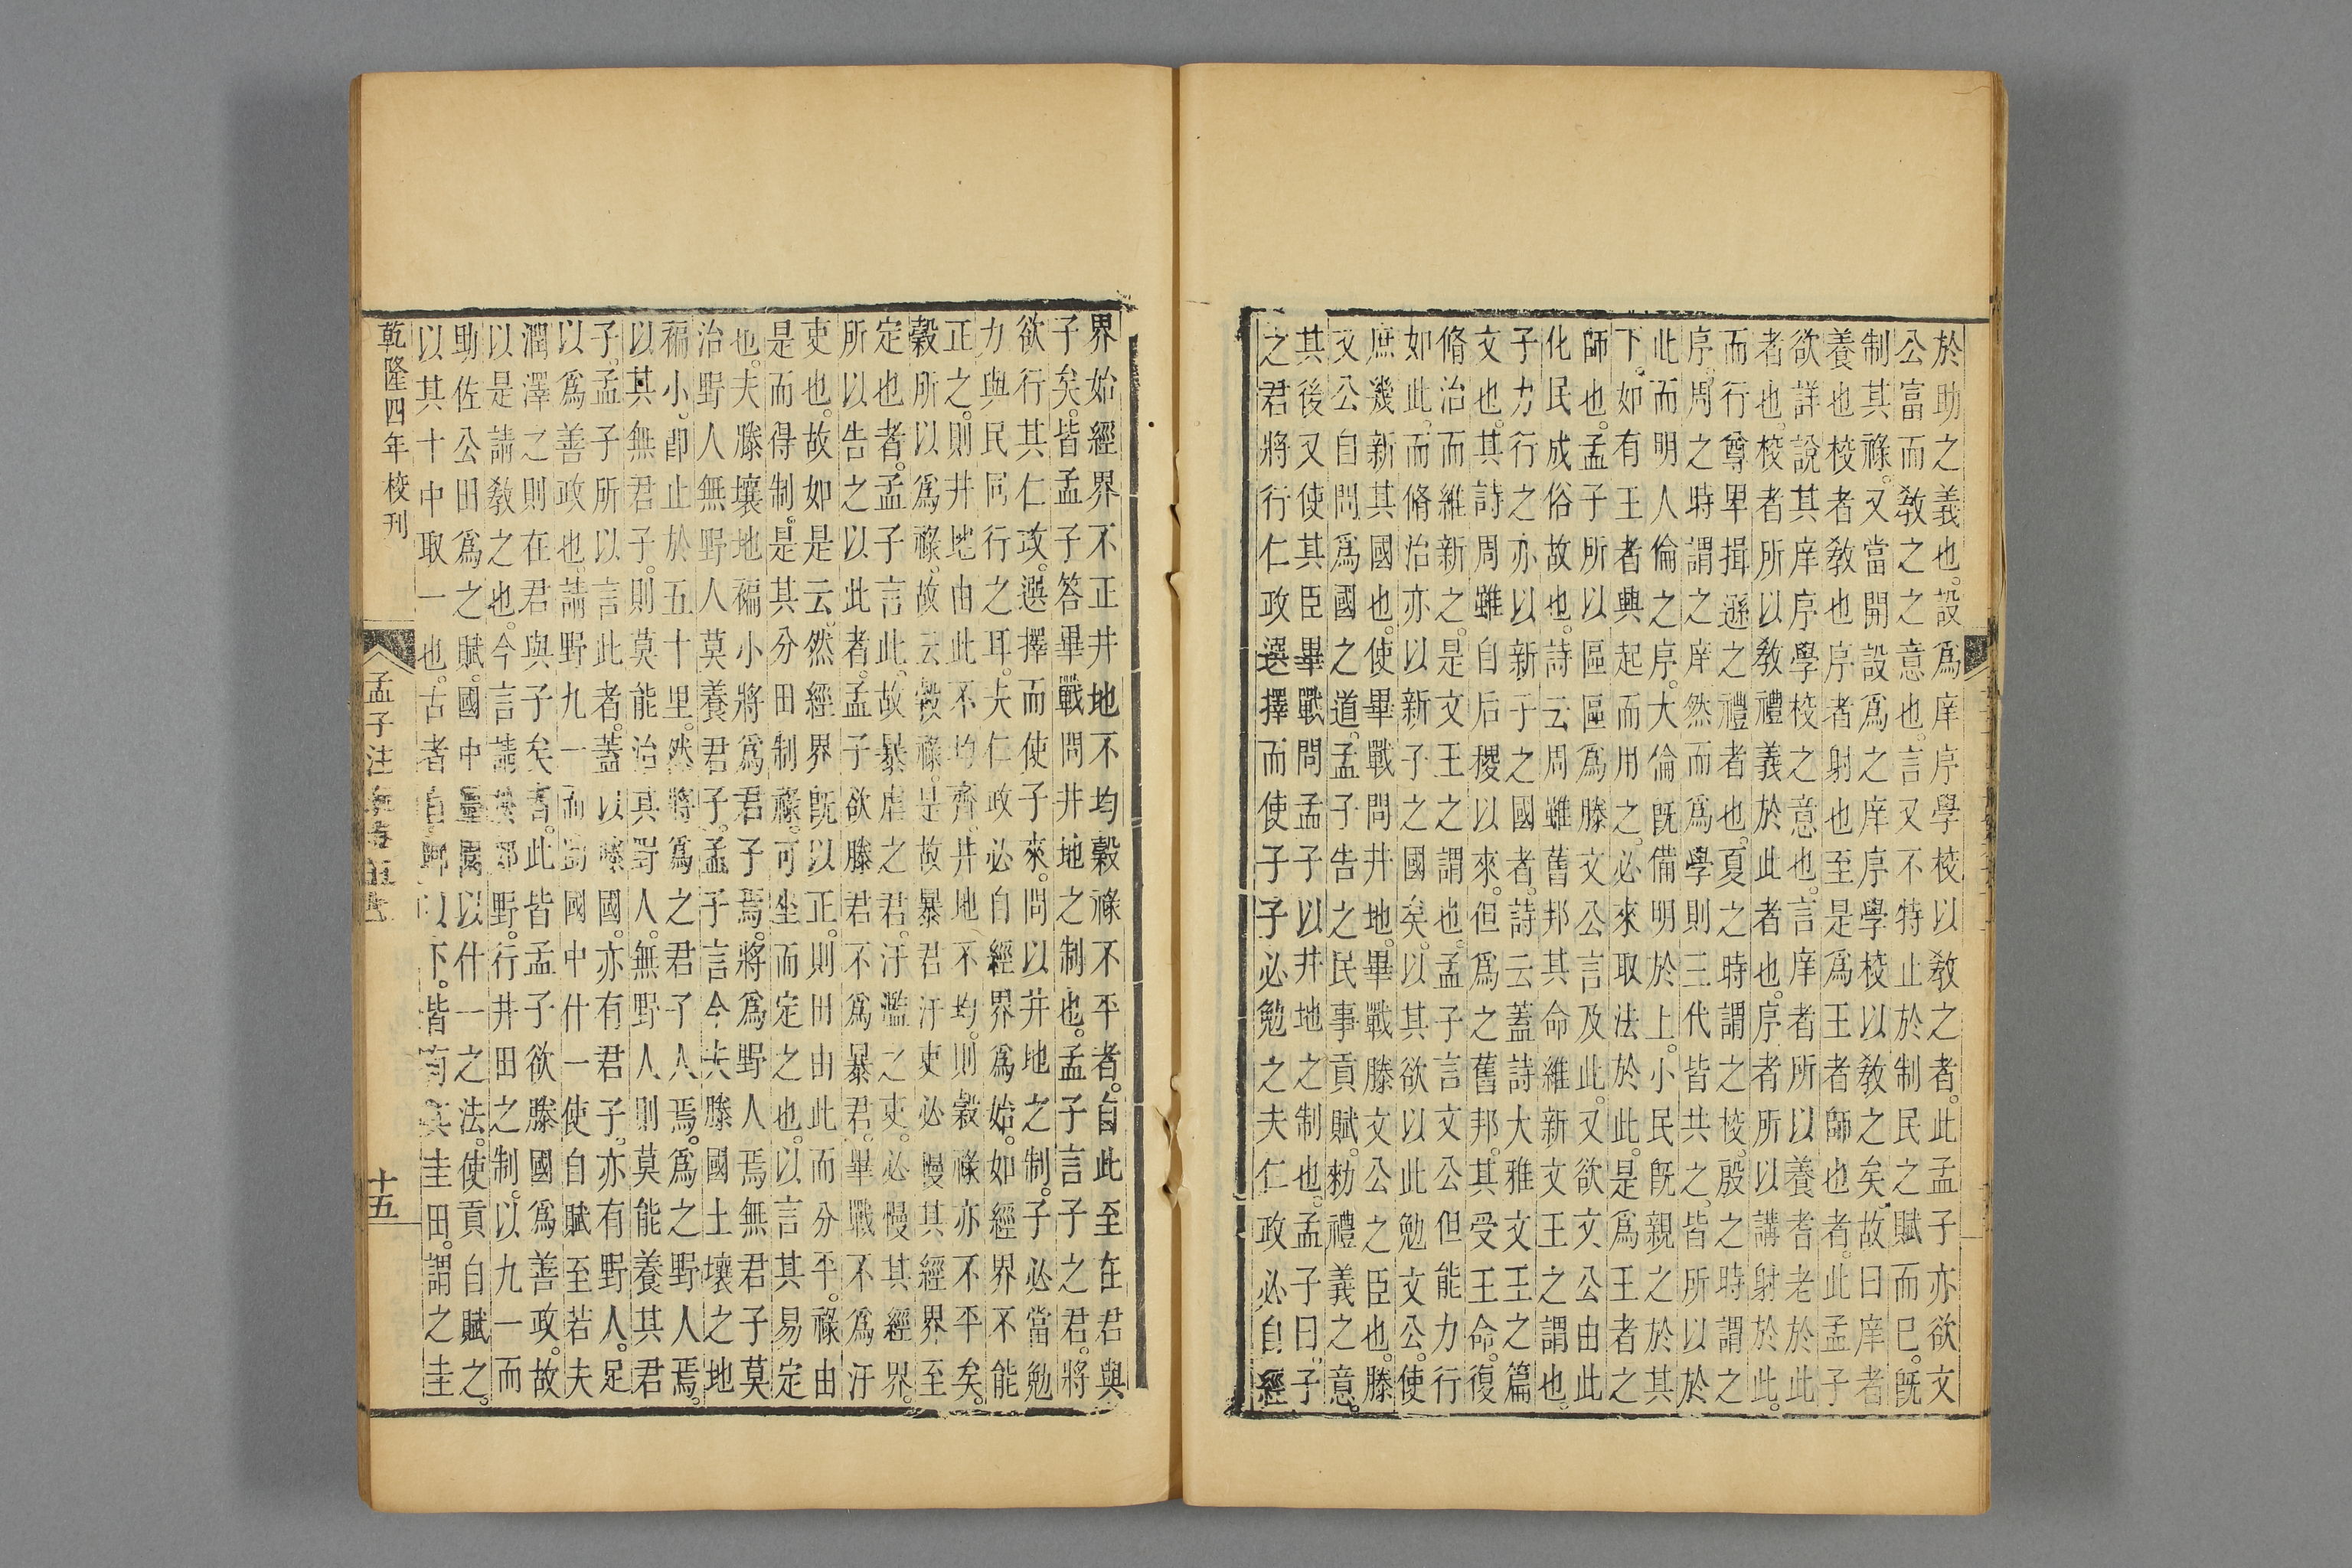 於助之義也設爲庠序學校以敎之者此孟子亦欲文
公富而敎之之意也言又不特止於制民之賦而巳旣
制其祿又當開設爲之庠序學校以敎之矣故曰庠者
養也校者敎也序者射也至是爲王者師也者此孟子
欲詳說其庠序學校之意也言庠者所以養耆老於此
者也校者所以敎禮義於此者也序者所以講射於此
而行尊卑揖遜之禮者也夏之時謂之校殷之時謂之
序周之時謂之庠然而爲學則三代皆共之皆所以於
此而明人倫之序大倫旣備明於上小民旣親之於其
下如有王者興起而用之必來取法於此是爲王者之
師也孟子所以區區爲滕文公言及此又欲文公由此
化民成俗故也詩云周雖舊邦其命維新文王之謂也
子力行之亦以新于之國者詩云蓋詩大雅文王之篇
文也其詩周雖自后稷以來但爲之舊邦其受王命復
脩治而維新之是文王之謂也孟子言文公但能力行
如此而脩治亦以新子之國矣以其欲以此勉文公使
庶幾新其國也使畢戰問井地畢戰滕文公之臣也滕
文公自問爲國之道孟子告之民事貢賦勑禮義之意
其後又使其臣畢戰問孟子以井地之制也孟子曰子
之君將行仁政選擇而使子子必勉之夫仁政必自經
界始經界不正井地不均穀祿不平者自此至在君與
子矣皆孟子答畢戰問井地之制也孟子言子之君將
欲行其仁政選擇而使子來問以井地之制子必當勉
力與民同行之耳夫仁政必自經界爲始如經界不能
正之則井地由此不均齊井地不均則穀祿亦不平矣
穀所以爲祿故云穀祿是故暴君汙吏必慢其經界至
定也者孟子言此故暴虐之君汙濫之吏必慢其經界
所以告之以此者孟子欲滕君不爲暴君畢戰不爲汙
吏也故如是云然經界旣以正則田由此而分平祿由
是而得制是其分田制祿可坐而定之也以言其易定
也夫滕壤地褊小將爲君子焉將爲野人焉無君子莫
治野人無野人莫養君子孟子言今夫滕國土壤之地
褊小卽止於五十里然將爲之君子人焉爲之野人焉
以其無君子則莫能治其野人無野人則莫能養其君
子孟子所以言此者蓋以滕國亦有君子亦有野人足
以爲善政也請野九一而助國中什一使自賦至若夫
潤澤之則在君與子矣者此皆孟子欲滕國爲善政故
以是請敎之也今言請於郊野行井田之制以九一而
助佐公田爲之賦國中以什一之法使貢自賦之
以其十中取一也古者自卿以下皆有其圭田謂之圭
乾隆四年校刊
孟子注疏卷五上考
十五